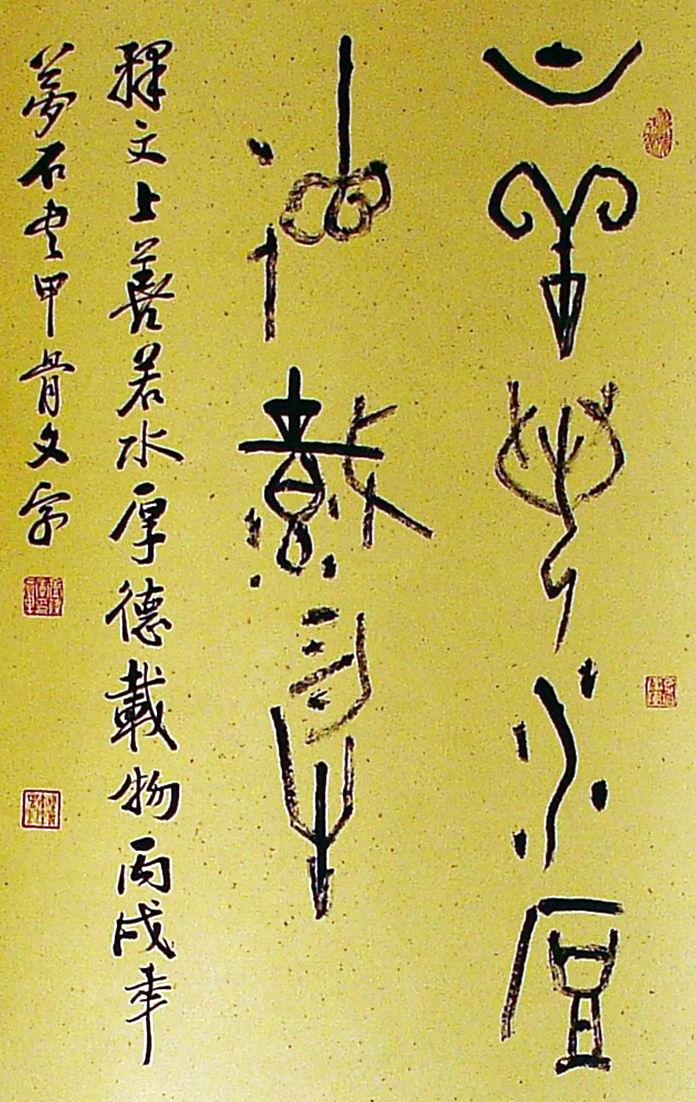 上善若水厚
德載物
釋文上善若水厚德載物丙戌年
夢石書甲骨文字